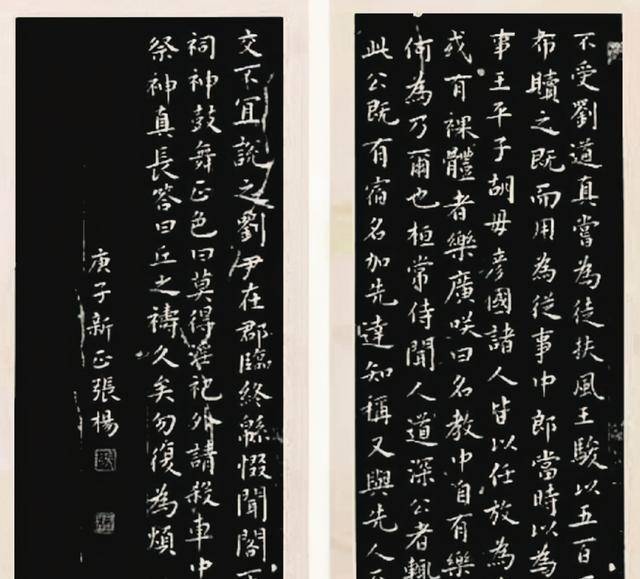 不受劉道真嘗為徒扶風王駿以五百
布贖之既而用為從事中郎當時以為
事王平子胡毋彥國諸人皆以任放為
或有裸體者樂廣咲曰名教中自有樂
何為乃爾也桓常侍聞人道深公者輒
此公既有宿名加先達知稱又與先人
交不宜說之劉伊在郡臨終緜惙聞閣
祠神鼓舞正色曰莫得淫祀外請殺車中
祭神真長答曰丘之禱久矣勿復為煩
庚子新正張楊